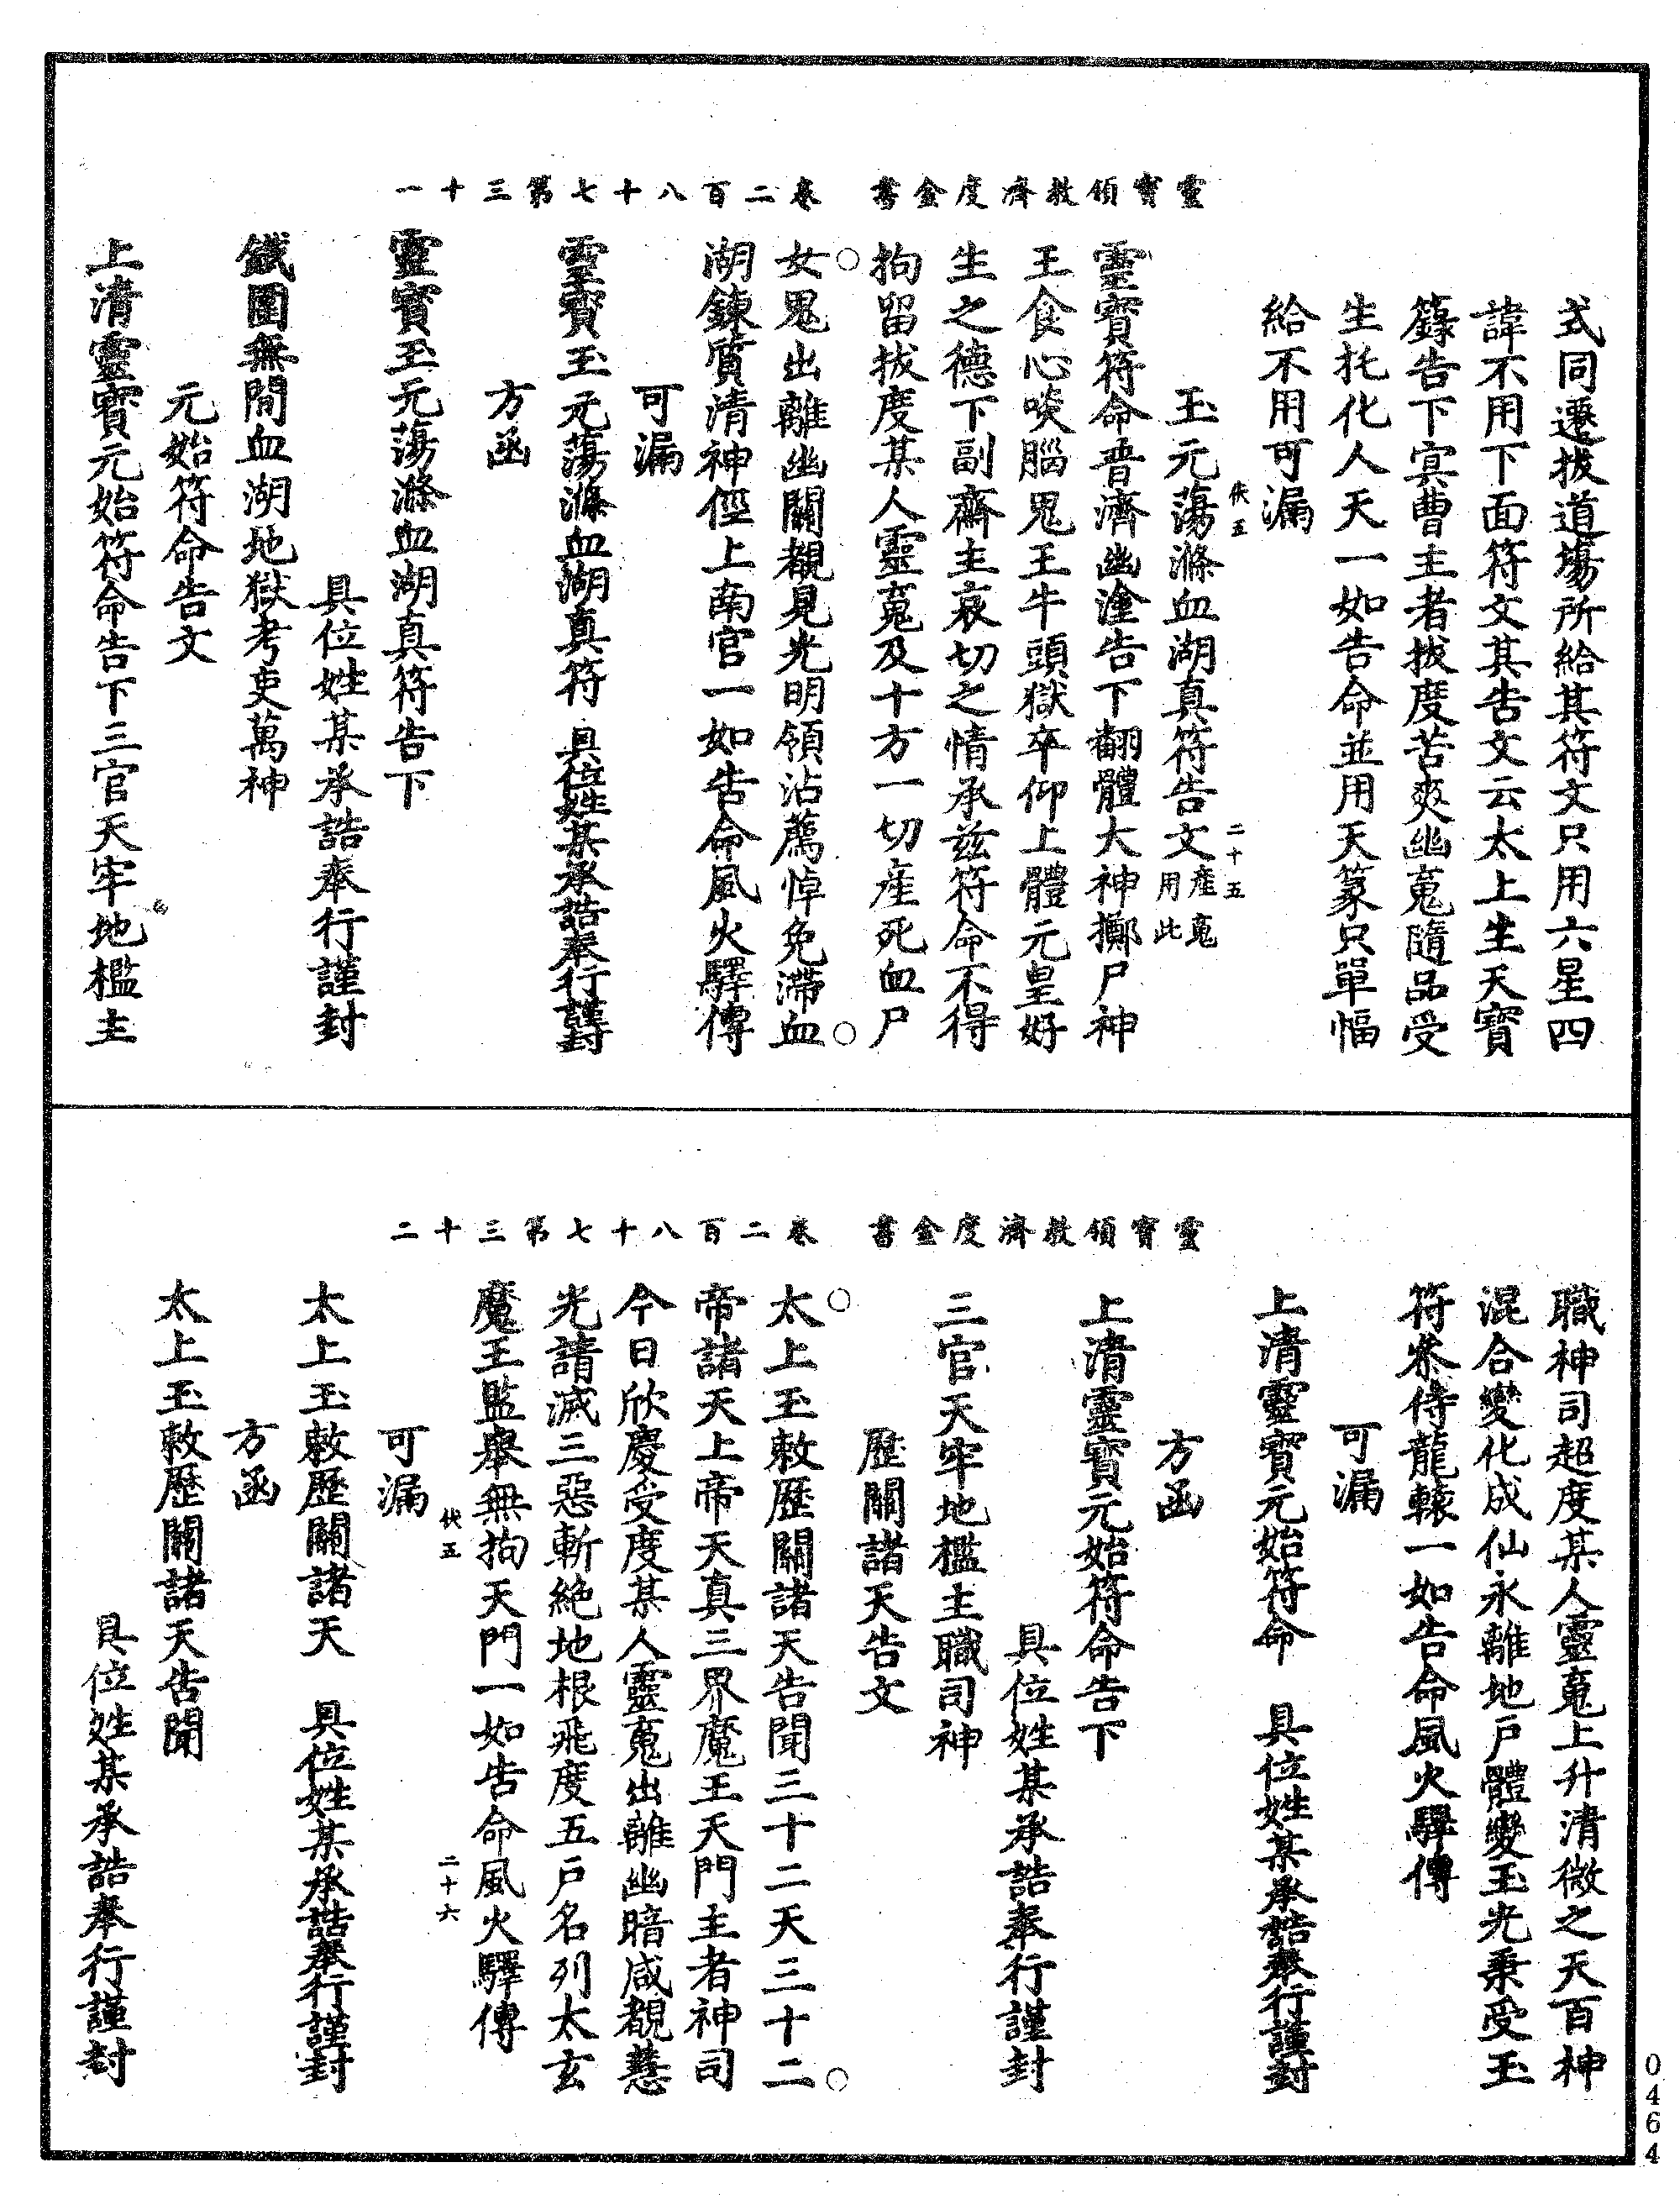 靈寶領教濟度金書　卷二百八十七第三十一
式同遷拔道場所給其符文只用六星四
諱不用下面符文其告文云太上生天寶
籙告下冥曹主者拔度苦爽幽䰟隨品受
生托化人天一如告命並用天篆只單幅
給不用可漏
伕五　二十五
玉元蕩滌血湖真符告文產䰟用此
靈寶符命普濟幽塗告下翻體大神擲尸神
王食心啖腦鬼王牛頭獄卒仰上體元皇好
生之德下副齋主哀切之情承兹符命不得
拘留拔度某人靈䰟及十方一切產死血尸
○　○
女鬼出離幽關覩見光明領沾薦悼免滯血
湖鍊質清神徑上南宮一如告命風火驛傳
可漏
靈寶玉元蕩滌血湖真符　具位姓某承誥奉行謹封
方函
靈寶玉元蕩滌血湖真符告下
具位姓某承誥奉行謹封
鐵圍無間血湖地獄考吏萬神
元始符命告文
上清靈寶元始符命告下三官天牢地檻主
靈寶領教濟度金書　卷二百八十七第三十二
職神司超度某人靈䰟上升清微之天百神
混合變化成仙永離地戶體變玉光秉受玉
符叅侍龍轅一如告命風火驛傳
可漏
上清靈寶元始符命　具位姓某承誥奉行謹封
方函
上清靈寶元始符命告下
具位姓某承誥奉行謹封
三官天牢地檻主職司神
歷關諸天告文
○　○
太上玉敕歷關諸天告聞三十二天三十二
帝諸天上帝天真三界魔王天門主者神司
今日欣慶受度某人靈䰟出離幽暗咸覩慧
光請滅三惡斬絕地根飛度五戶名列太玄
魔王監舉無拘天門一如告命風火驛傳
伕五　二十六
可漏
太上玉敕歷關諸天　具位姓某承誥奉行謹封
方函
太上玉敕歷關諸天告聞
具位姓某承誥奉行謹封
0464